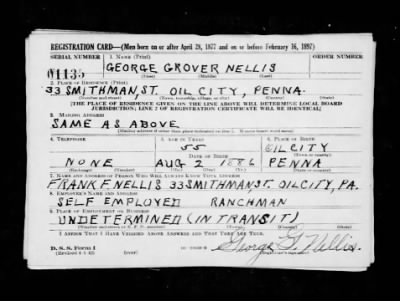 REGISTRATION CARD—(Men born on or after April 28, 1877 and on or before February 16, 1897)
SERIAL NUMBER 1. NAME (Print) ORDER NUMBER
U1135 GEORGE GROVER NELLIS
(First) (Middle) (Last)
2. PLACE OF RESIDENCE (Print)
33 SMITHMAN, ST. OIL CITY, PENNA.
(Number and street) (Town, township, village, or city) (County) (State)
[THE PLACE OF RESIDENCE GIVEN ON THE LINE ABOVE WILL DETERMINE LOCAL BOARD
JURISDICTION; LINE 2 OF REGISTRATION CERTIFICATE WILL BE IDENTICAL]
3. MAILING ADDRESS
SAME AS ABOVE
[Mailing address if other than place indicated on line 2. If same insert word same]
4. TELEPHONE 5. AGE IN YEARS 6. PLACE OF BIRTH
55 OIL CITY
DATE OF BIRTH (Town or county)
NONE AUG 2 1886 PENNA
(Exchange) (Number) (Mo.) (Day) (Yr.) (State or country)
7. NAME AND ADDRESS OF PERSON WHO WILL ALWAYS KNOW YOUR ADDRESS
FRANK F. NELLIS 33 SMITHMAN ST. OIL CITY, PA.
8. EMPLOYER'S NAME AND ADDRESS
SELF EMPLOYED RANCHMAN
9. PLACE OF EMPLOYMENT OR BUSINESS
UNDETERMINED (IN TRANSIT)
(Number and street or R. F. D. number) (Town) (County) (State)
I AFFIRM THAT I HAVE VERIFIED ABOVE ANSWERS AND THAT THEY ARE TRUE.
D. S. S. Form 1 George G. Nellis.
(Revised 4-1-42) (over) (Registrant's signature)